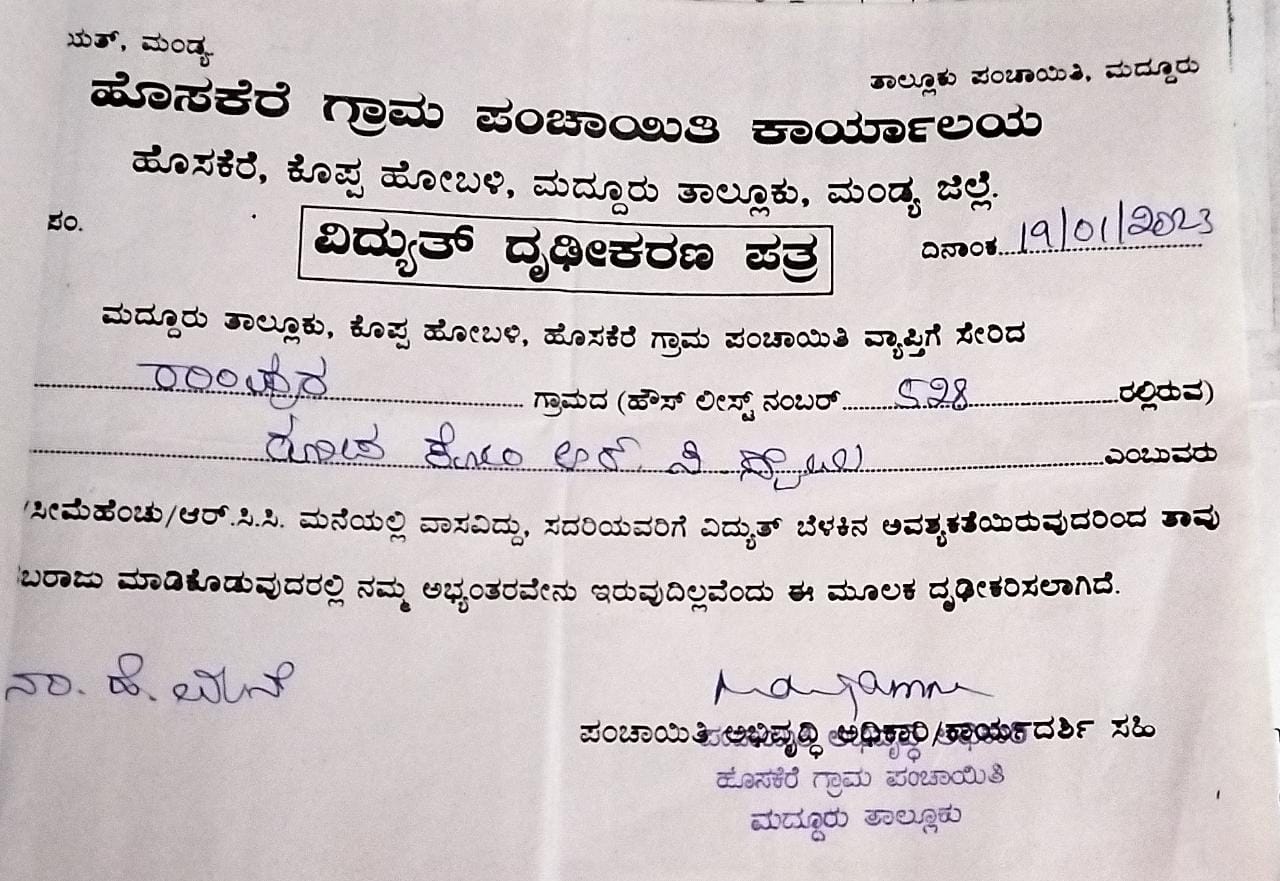 ಯತ್, ಮಂಡ್ಯ
ತಾಲ್ಲೂಕು ಪಂಚಾಯಿತಿ, ಮದ್ದೂರು
ಹೊಸಕೆರೆ ಗ್ರಾಮ ಪಂಚಾಯಿತಿ ಕಾರ್ಯಾಲಯ
ಹೊಸಕೆರೆ, ಕೊಪ್ಪ ಹೋಬಳಿ, ಮದ್ದೂರು ತಾಲ್ಲೂಕು, ಮಂಡ್ಯ ಜಿಲ್ಲೆ.
ಸಂ.
ವಿದ್ಯುತ್ ದೃಢೀಕರಣ ಪತ್ರ
ದಿನಾಂಕ 19/01/2023
ಮದ್ದೂರು ತಾಲ್ಲೂಕು, ಕೊಪ್ಪ ಹೋಬಳಿ, ಹೊಸಕೆರೆ ಗ್ರಾಮ ಪಂಚಾಯಿತಿ ವ್ಯಾಪ್ತಿಗೆ ಸೇರಿದ
ಗ್ರಾಮದ (ಹೌಸ್ ಲೀಸ್ಟ್ ನಂಬರ್ 528 ರಲ್ಲಿರುವ)
ಕೋಂ ಆರ್ ಎಂಬುವರು
/ಸೀಮೆಹೆಂಚು/ಆರ್.ಸಿ.ಸಿ. ಮನೆಯಲ್ಲಿ ವಾಸವಿದ್ದು, ಸದರಿಯವರಿಗೆ ವಿದ್ಯುತ್ ಬೆಳಕಿನ ಅವಶ್ಯಕತೆಯಿರುವುದರಿಂದ ತಾವು
ಬರಾಜು ಮಾಡಿಕೊಡುವುದರಲ್ಲಿ ನಮ್ಮ ಅಭ್ಯಂತರವೇನು ಇರುವುದಿಲ್ಲವೆಂದು ಈ ಮೂಲಕ ದೃಢೀಕರಿಸಲಾಗಿದೆ.
ಪಂಚಾಯಿತಿ ಅಭಿವೃದ್ಧಿ ಅಧಿಕಾರಿ/ಕಾರ್ಯದರ್ಶಿ ಸಹಿ
ಹೊಸಕೆರೆ ಗ್ರಾಮ ಪಂಚಾಯಿತಿ
ಮದ್ದೂರು ತಾಲ್ಲೂಕು